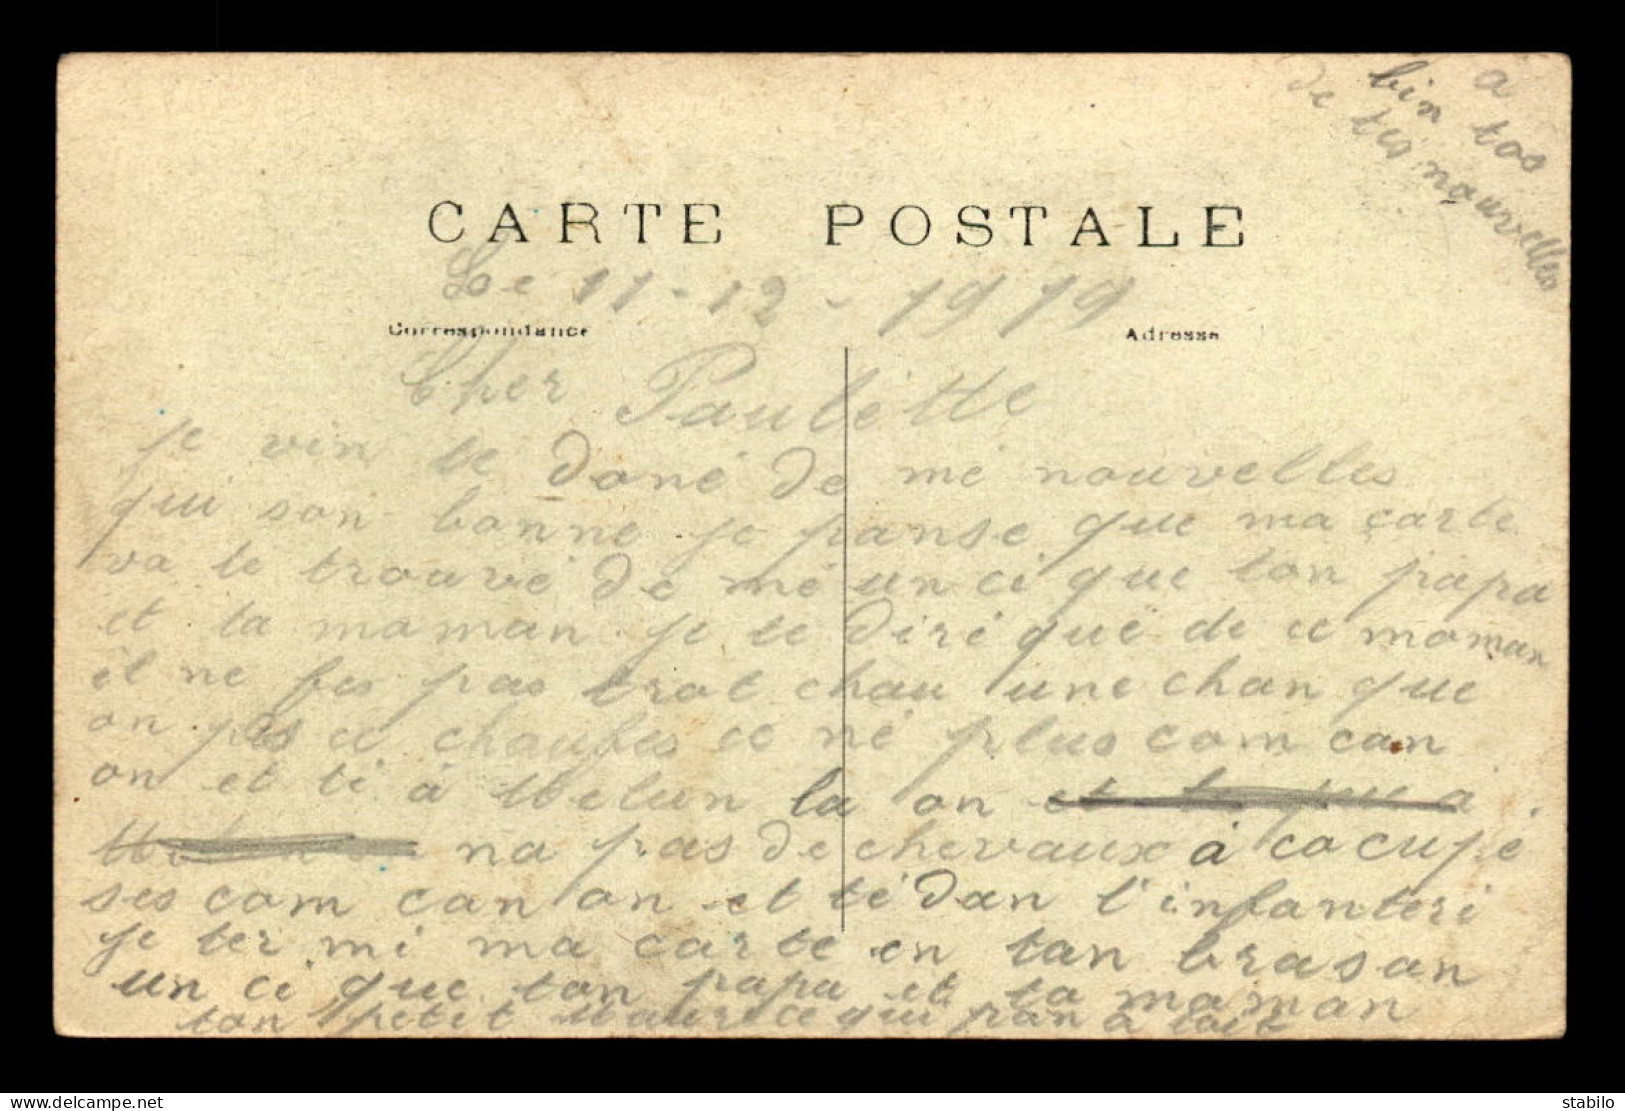 a
bin tos
de tes nouvelles
CARTE POSTALE
Le 11-12-1919
Correspondance
Adresse
Cher Paulette
je vin te doné de mé nouvelles
qui son bonne je panse que ma carte
va te trouvé de mé un ci que ton papa
et ta maman je te diré que de ce moman
il ne fes pas trot chau une chan que
on pes ce chaufes ce né plus com can
on et ti à Melun la on et
na pas de chevaux à cocupé
ses com can on et té dan l'infanteri
je ter mi ma carte en tan brasan
un ci que ton papa et ta maman
ton petit Maurice qui pan a toit
stabilo
www.delcampe.net